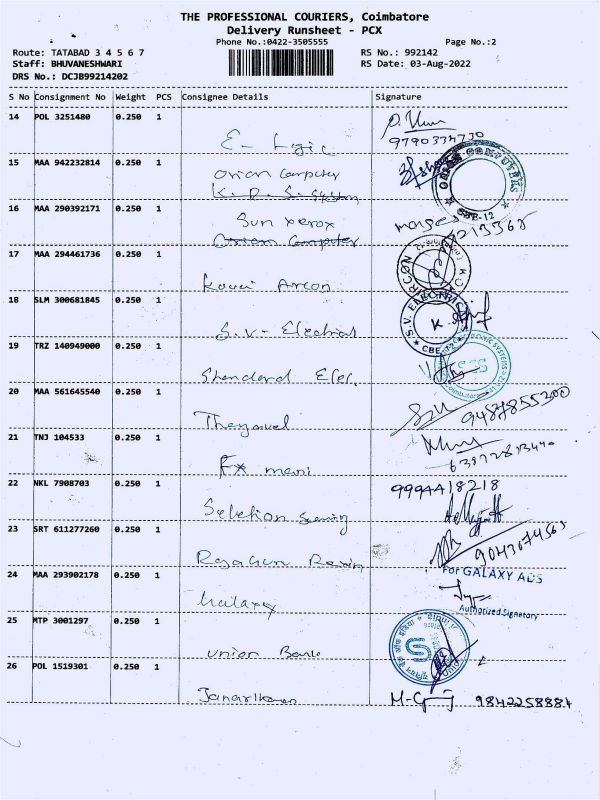 THE PROFESSIONAL COURIERS, Coimbatore
Delivery Runsheet - PCX
Phone No.:0422-3505555 Page No.:2
Route: TATABAD 3 4 5 6 7 RS No.: 992142
Staff: BHUVANESHWARI RS Date: 03-Aug-2022
DRS No.: DCJB99214202
S No Consignment No Weight PCS Consignee Details Signature
14 POL 3251480 0.250 1
E- Logic 9790334730
15 MAA 942232814 0.250 1
Orion Computer
K. P. S. System
ORION COMPUTERS CBE-12
16 MAA 290392171 0.250 1
Sun xerox
Orison Computer
17 MAA 294461736 0.250 1
Kovai Arcon
18 SLM 300681845 0.250 1
S.V- Electrical
S.V. ELECTRICALS K CBE-12
19 TRZ 140949000 0.250 1
Standard Elec.
20 MAA 561645540 0.250 1
9487855300
21 TNJ 104533 0.250 1
Fx mani
22 NKL 7908703 0.250 1
9994418218
Selection
23 SRT 611277260 0.250 1
9043074565
24 MAA 293902178 0.250 1
For GALAXY ADS
Authorized Signatory
25 MTP 3001297 0.250 1
Union Bank
26 POL 1519301 0.250 1
9842258884